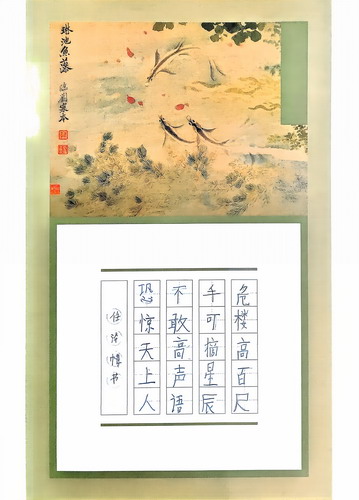 琳池魚藻
危楼高百尺
手可摘星辰
不敢高声语
恐惊天上人